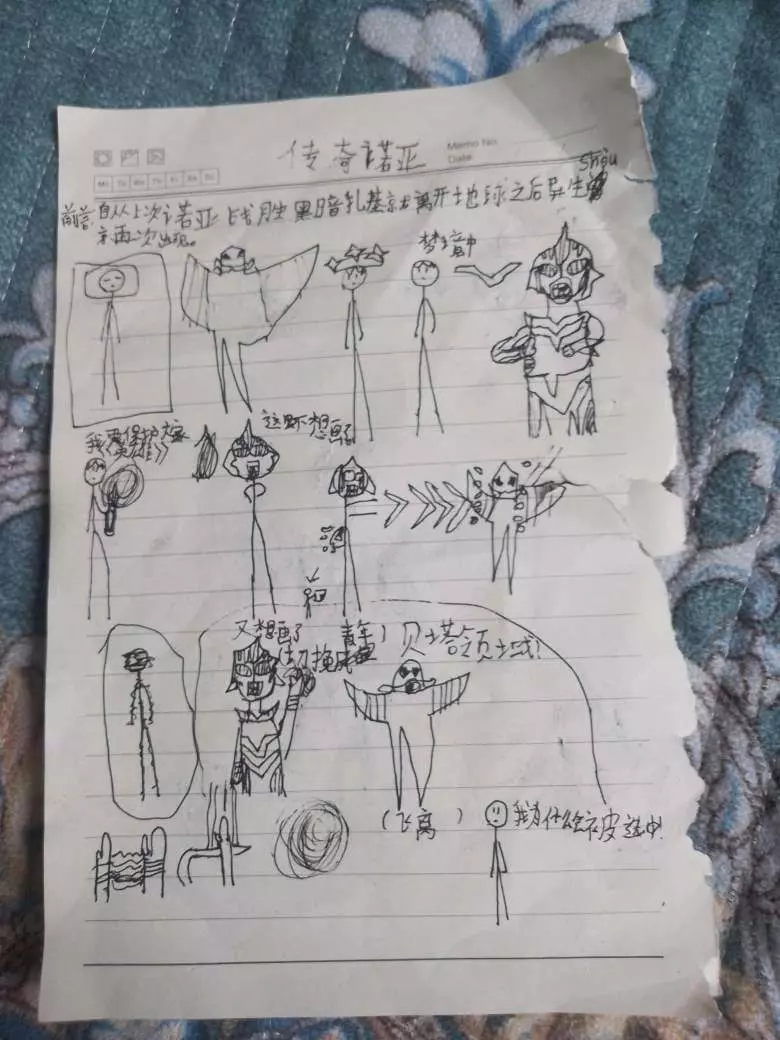 传奇诺亚
Memo No.
Date
Mo Tu We Th Fr Sa Su
shòu
前言:自从上次诺亚战胜黑暗扎基就离开地球之后异生兽
再次出现。
梦境中
我要保护大家
这里不想画了
又想画了
青年)
切换成
贝塔领土域!
(飞离)
我为什么会被选中!